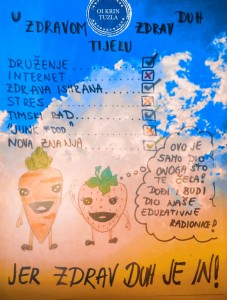 OI KRIN
TUZLA
U ZDRAVOM ZDRAV DUH
TIJELU
DRUŽENJE
INTERNET
ZDRAVA ISHRANA
STRES
TIMSKI RAD
"JUNK FOOD"
NOVA ZNANJA
OVO JE
SAMO DIO
ONOGA ŠTO
TE ČEKA!
DOĐI I BUDI
DIO NAŠE
EDUKATIVNE
RADIONICE!
JER ZDRAV DUH JE IN!